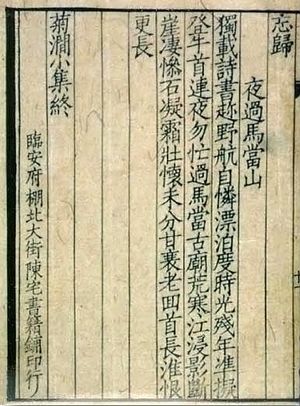 忘歸
夜過馬當山
獨載詩書趂野航自憐漂泊度時光殘年准擬
登牛首連夜匆忙過馬當古廟荒寒江浸影斷
崖凄慘石凝霜壯懷未分甘衰老回首長淮恨
更長
菊磵小集終
臨安府棚北大街陳宅書籍鋪印行